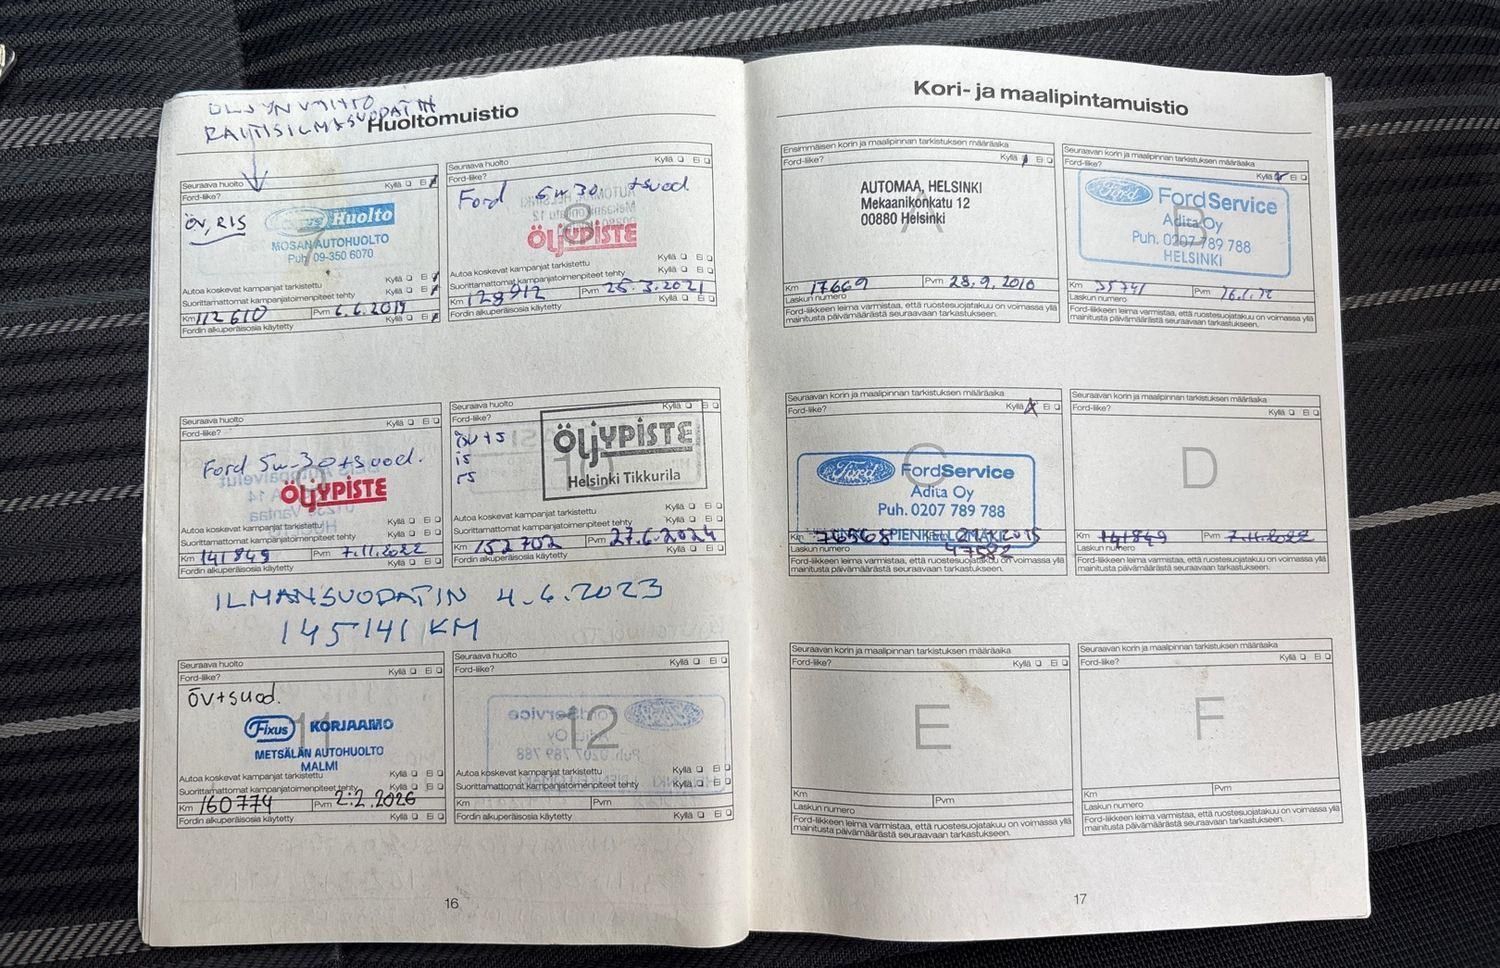 ÖLJYNVAIHTO
RAITISILMASUODATIN
Huoltomuistio
Seuraava huolto
Kyllä Ei
Ford-liike?
ÖV, RIS
Huolto
MOSAN AUTOHUOLTO
Puh. 09-350 6070
7
Autoa koskevat kampanjat tarkistettu Kyllä Ei
Suorittamattomat kampanjatoimenpiteet tehty Kyllä Ei
Km 112 610 Pvm 6.6.2019
Fordin alkuperäisosia käytetty Kyllä Ei
Seuraava huolto
Kyllä Ei
Ford-liike?
Ford 5w30 +suod
8
ÖLJYPISTE
Autoa koskevat kampanjat tarkistettu Kyllä Ei
Suorittamattomat kampanjatoimenpiteet tehty Kyllä Ei
Km 128912 Pvm 25.3.2021
Fordin alkuperäisosia käytetty Kyllä Ei
Seuraava huolto
Kyllä Ei
Ford-liike?
Ford 5w-30+suod.
ÖLJYPISTE
Autoa koskevat kampanjat tarkistettu Kyllä Ei
Suorittamattomat kampanjatoimenpiteet tehty Kyllä Ei
Km 141849 Pvm 7.11.2022
Fordin alkuperäisosia käytetty Kyllä Ei
Seuraava huolto
Kyllä Ei
Ford-liike?
ÖV+S
is
rs
10
ÖLJYPISTE
Helsinki Tikkurila
Autoa koskevat kampanjat tarkistettu Kyllä Ei
Suorittamattomat kampanjatoimenpiteet tehty Kyllä Ei
Km 152702 Pvm 27.6.2024
Fordin alkuperäisosia käytetty Kyllä Ei
ILMANSUODATIN 4.6.2023
145141 KM
Seuraava huolto
Kyllä Ei
Ford-liike?
ÖV+suod.
11
Fixus KORJAAMO
METSÄLÄN AUTOHUOLTO
MALMI
Autoa koskevat kampanjat tarkistettu Kyllä Ei
Suorittamattomat kampanjatoimenpiteet tehty Kyllä Ei
Km 160774 Pvm 2.2.2026
Fordin alkuperäisosia käytetty Kyllä Ei
Seuraava huolto
Kyllä Ei
Ford-liike?
12
Autoa koskevat kampanjat tarkistettu Kyllä Ei
Suorittamattomat kampanjatoimenpiteet tehty Kyllä Ei
Km Pvm
Fordin alkuperäisosia käytetty Kyllä Ei
16
Kori- ja maalipintamuistio
Ensimmäisen korin ja maalipinnan tarkistuksen määräaika
Ford-liike? Kyllä Ei
AUTOMAA, HELSINKI
Mekaanikonkatu 12
00880 Helsinki
A
Km 17669 Pvm 28.9.2010
Laskun numero
Ford-liikkeen leima varmistaa, että ruostesuojatakuu on voimassa yllä
mainitusta päivämäärästä seuraavaan tarkastukseen.
Seuraavan korin ja maalipinnan tarkistuksen määräaika
Ford-liike? Kyllä Ei
Ford FordService
Adita Oy
Puh. 0207 789 788
HELSINKI
B
Km 35741 Pvm 26.1.12
Laskun numero
Ford-liikkeen leima varmistaa, että ruostesuojatakuu on voimassa yllä
mainitusta päivämäärästä seuraavaan tarkastukseen.
Seuraavan korin ja maalipinnan tarkistuksen määräaika
Ford-liike? Kyllä Ei
C
Ford FordService
Adita Oy
Puh. 0207 789 788
PIENKELLOMÄKI
Km 76568 2015
Laskun numero 47582
Ford-liikkeen leima varmistaa, että ruostesuojatakuu on voimassa yllä
mainitusta päivämäärästä seuraavaan tarkastukseen.
Seuraavan korin ja maalipinnan tarkistuksen määräaika
Ford-liike? Kyllä Ei
D
Km 141849 Pvm 7.11.2022
Laskun numero
Ford-liikkeen leima varmistaa, että ruostesuojatakuu on voimassa yllä
mainitusta päivämäärästä seuraavaan tarkastukseen.
Seuraavan korin ja maalipinnan tarkistuksen määräaika
Ford-liike? Kyllä Ei
E
Km Pvm
Laskun numero
Ford-liikkeen leima varmistaa, että ruostesuojatakuu on voimassa yllä
mainitusta päivämäärästä seuraavaan tarkastukseen.
Seuraavan korin ja maalipinnan tarkistuksen määräaika
Ford-liike? Kyllä Ei
F
Km Pvm
Laskun numero
Ford-liikkeen leima varmistaa, että ruostesuojatakuu on voimassa yllä
mainitusta päivämäärästä seuraavaan tarkastukseen.
17